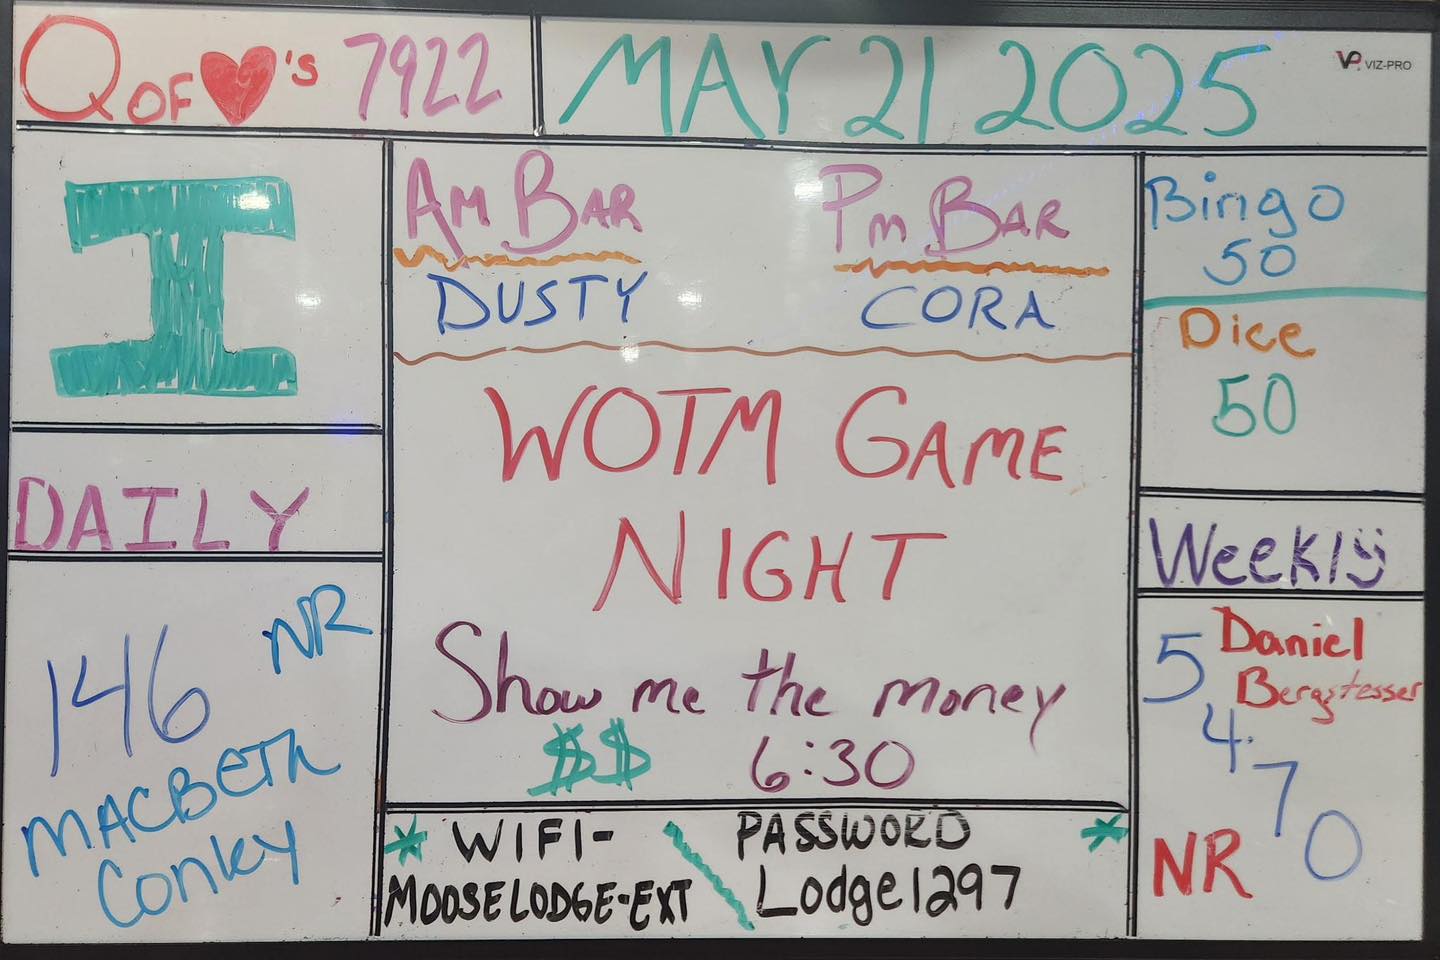 Q OF ♥'s 7922
MAY 21 2025
VP VIZ-PRO
I
DAILY
146 NR
MACBETH
Conley
AM BAR
DUSTY
PM BAR
CORA
WOTM GAME
NIGHT
Show me the money
$$ 6:30
* WIFI-
MOOSELODGE-EXT
PASSWORD *
Lodge1297
Bingo
50
Dice
50
Weekly
5 Daniel
Bergstesser
4
7
0
NR